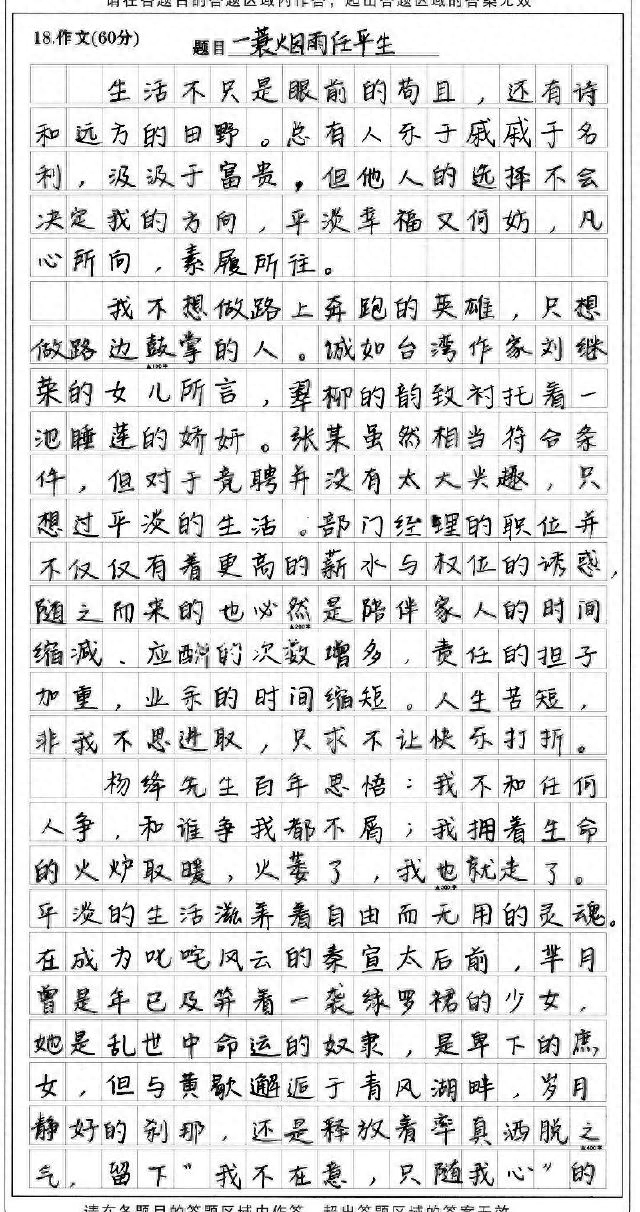 请在各题目的答题区域内作答，超出答题区域的答案无效
18.作文(60分) 题目 一蓑烟雨任平生
生活不只是眼前的苟且，还有诗
和远方的田野。总有人乐于戚戚于名
利，汲汲于富贵，但他人的选择不会
决定我的方向，平淡幸福又何妨，凡
心所向，素履所往。
我不想做路上奔跑的英雄，只想
做路边鼓掌的人。诚如台湾作家刘继
▲100字
荣的女儿所言，翠柳的韵致衬托着一
池睡莲的娇妍。张某虽然相当符合条
件，但对于竞聘并没有太大兴趣，只
想过平淡的生活。部门经理的职位并
不仅仅有着更高的薪水与权位的诱惑，
随之而来的也必然是陪伴家人的时间
▲200字
缩减、应酬的次数增多，责任的担子
加重，业余的时间缩短。人生苦短，
非我不思进取，只求不让快乐打折。
杨绛先生百年思悟：我不和任何
人争，和谁争我都不屑；我拥着生命
的火炉取暖，火萎了，我也就走了。
▲300字
平淡的生活滋养着自由而无用的灵魂。
在成为叱咤风云的秦宣太后前，芈月
曾是年已及笄着一袭绿罗裙的少女，
她是乱世中命运的奴隶，是卑下的庶
女，但与黄歇邂逅于青风湖畔，岁月
静好的刹那，还是释放着率真洒脱之
▲400字
气，留下"我不在意，只随我心"的
请在各题目的答题区域内作答，超出答题区域的答案无效